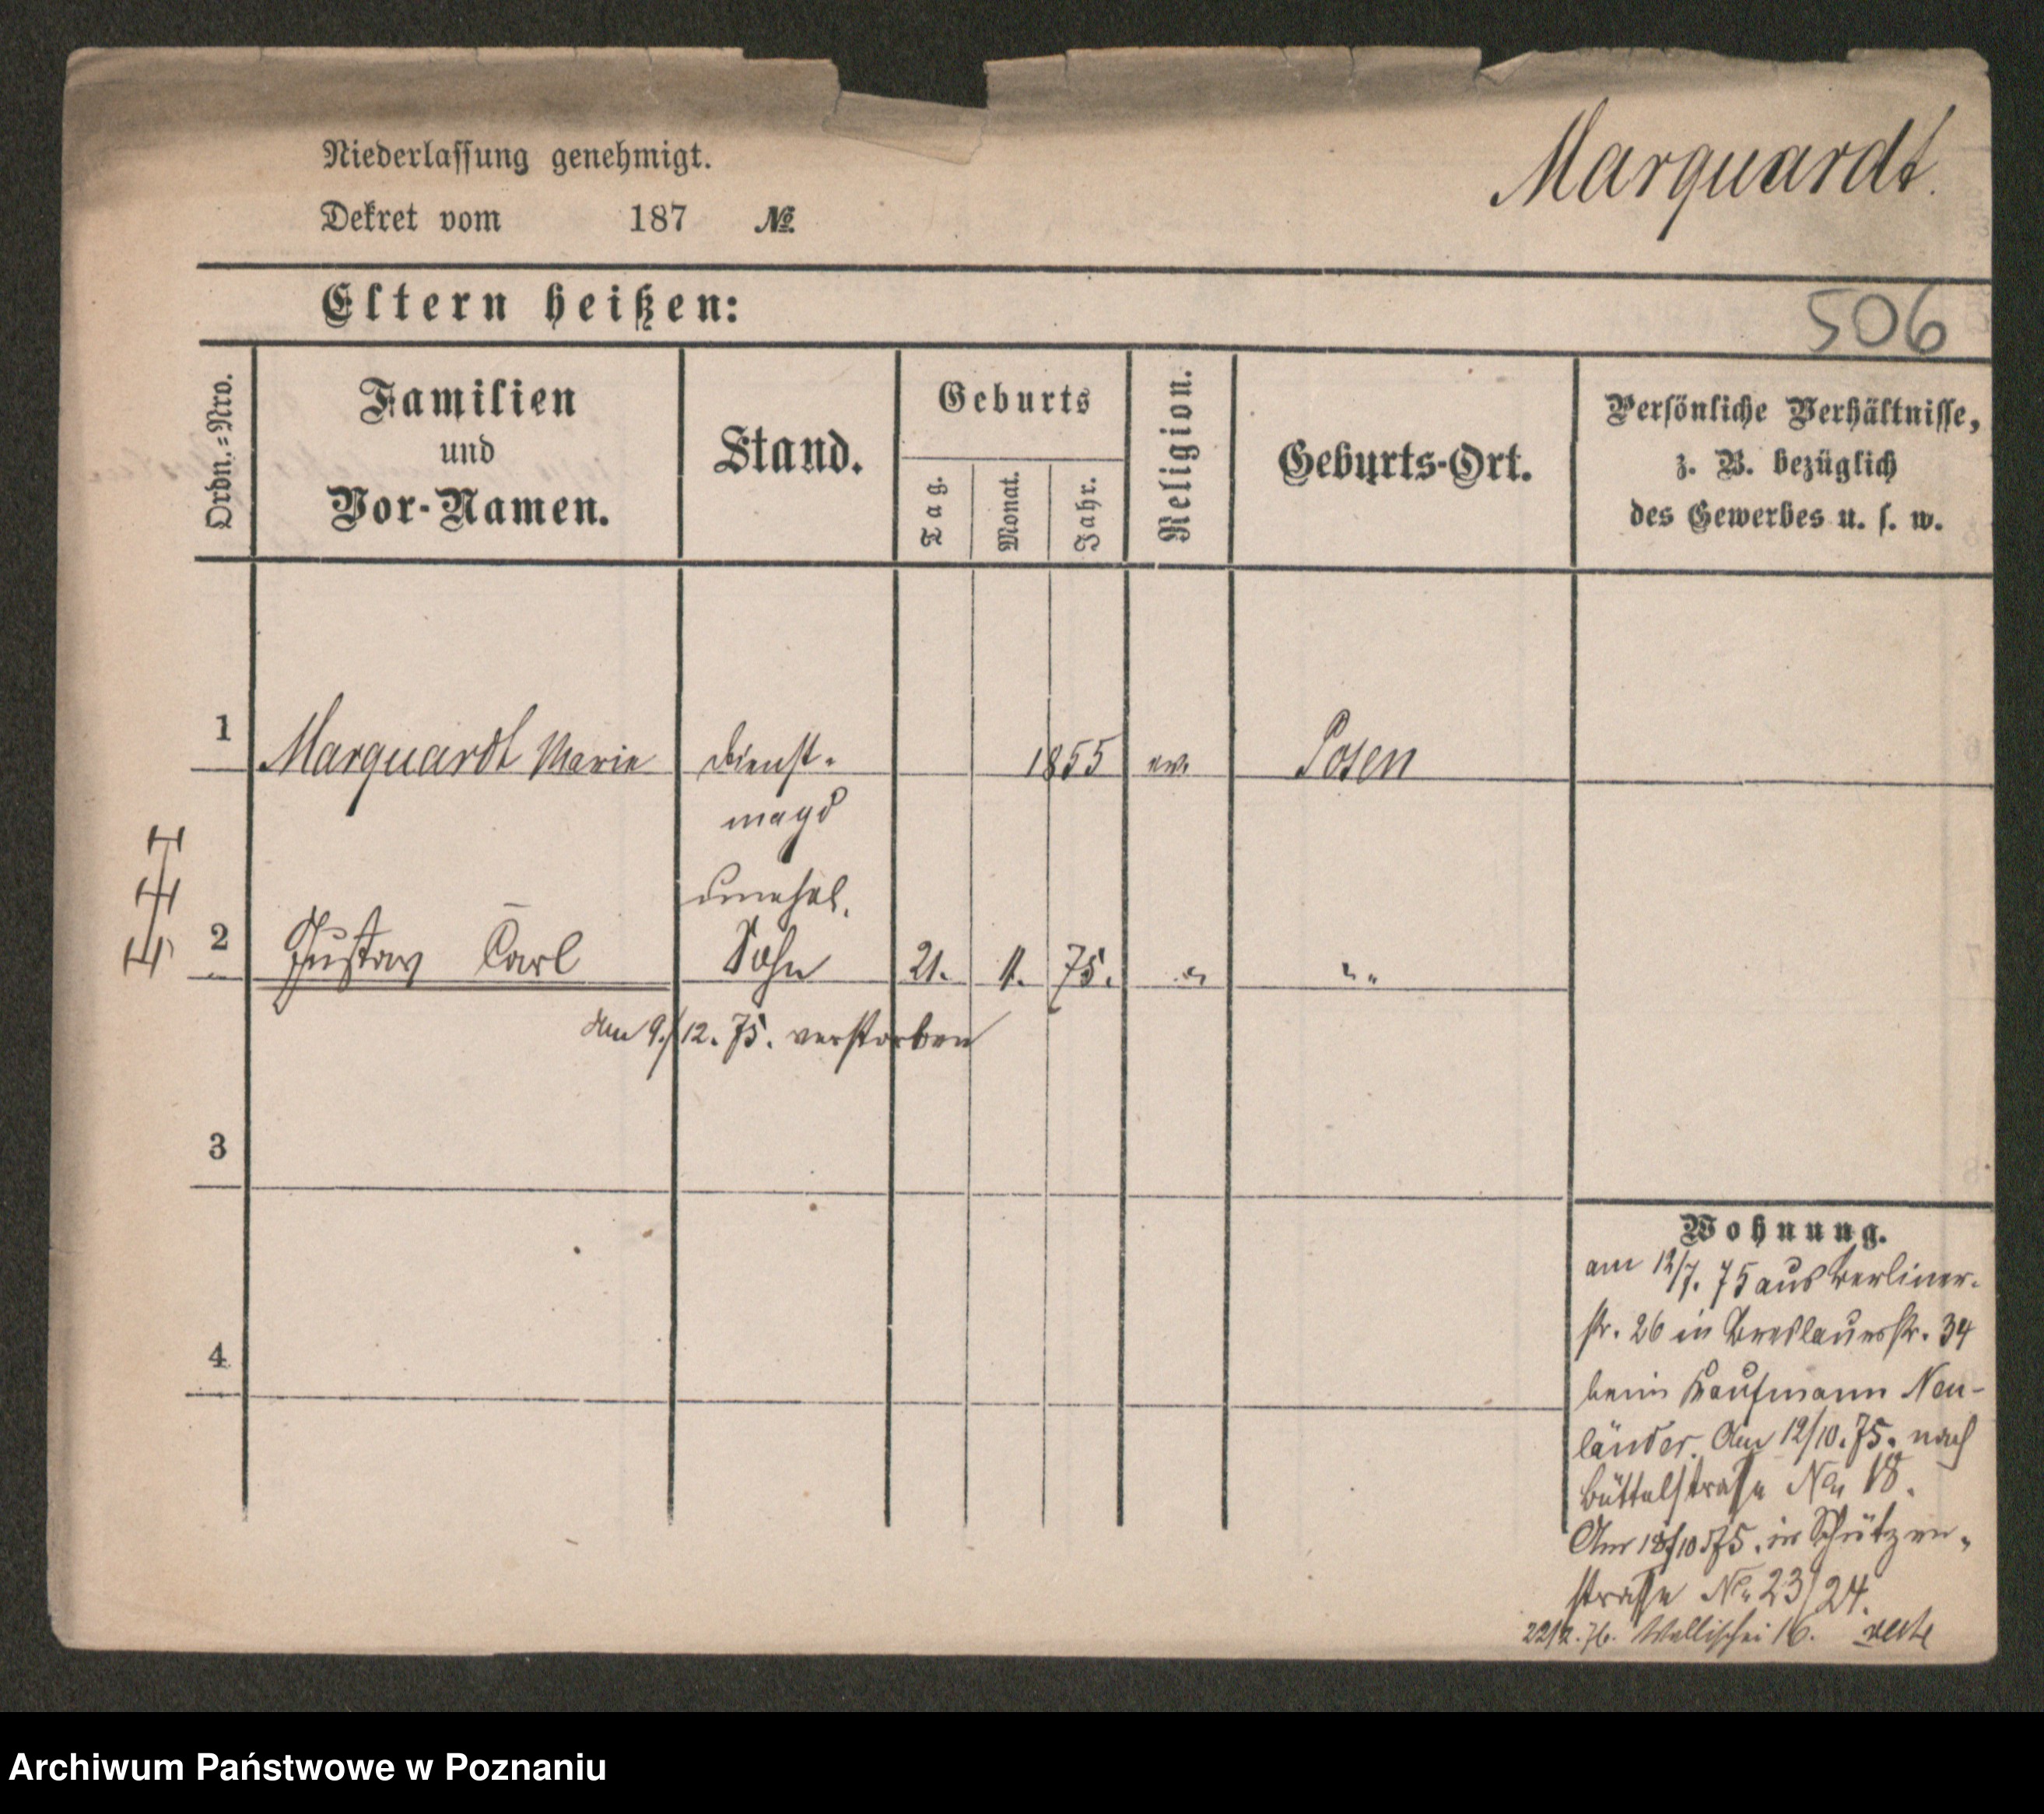 Niederlassung genehmigt.
Marquardt.
Dekret vom 187 №
Eltern heißen:
506
Ordn.=Nro.
Familien
und
Vor-Namen.
Stand.
Geburts
Tag.
Monat.
Jahr.
Religion.
Geburts-Ort.
Persönliche Verhältnisse,
z. B. bezüglich
des Gewerbes u. s. w.
1 Marquardt Marie Dienst- 1855 ev. Posen
magd
unehel.
2 Gustav Carl Sohn 21. 1. 75. " " "
Am 9./12. 75. verstorben
3
4
Wohnung.
am 12/7. 75 aus Berliner-
str. 26 in Breslauerstr. 34
beim Kaufmann Neu-
länder. Am 12/10. 75. nach
Büttelstraße No 18.
Am 18/10 75. in Schützen-
straße No 23/24.
Wallischei 16.
Archiwum Państwowe w Poznaniu